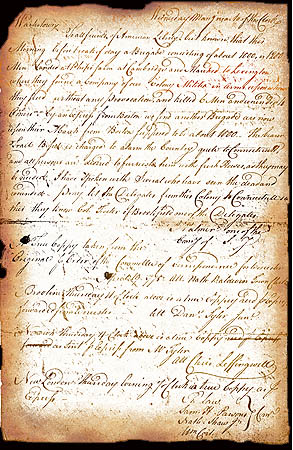 Watertown Wednesday Morning near 10 of the Clock
To all friends of American Liberty, be it known that this
Morning before break of day a Brigade consisting of about 1000 or 1200
Men landed at Phips's farm at Cambridge and Marched to Lexington
where they found a Company of our Colony Militia in Arms, upon whom
they fired without any Provocation and killed 6 Men and wounded 4
others. By an Express from Boston we find another Brigade are now
upon their March from Boston supposed to be about 1000. The bearer
Israel Bissel is charged to alarm the Country quite to Connecticut
and all persons are desired to furnish him with fresh Horses, as they may
be needed. I have Spoken with Several who have seen the dead and
wounded. Pray let the Delegates from this Colony to Connecticut see
this they know Col. Foster of Brookfield one of the Delegates
J. Palmer one of the
Comy of Sy.
A True Coppy taken from the
Original Order of the Committee of
Worcester April 19th 1775 Att. Nath. Baldwin Town
Brooklin Thursday 11 Clock above is a true Coppy
forwarded Att Danl. Tyler Junr.
Norwich Thursday 4 Clock above is a true Coppy
as Sent Express from Mr Tyler
Att Chrisr Leffingwell
New London Thursday Evening 7 Clock a true Coppy as
Express
Rd. Law
Saml H. Parsons
Nathl Shaw
Wm Coit
Comtee